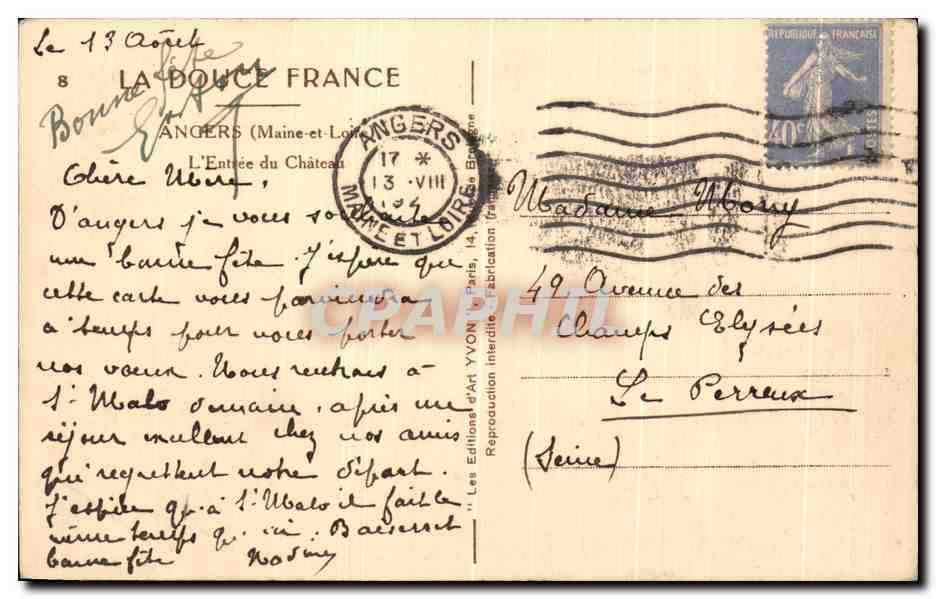 Le 13 Août
Bonne fête
8 LA DOUCE FRANCE
ANGERS (Maine-et-Loire)
L'Entrée du Château
Chère Mère,
D'angers je vous souhaite
une bonne fête. J'espère que
cette carte vous parviendra
à temps pour vous porter
nos vœux. Nous rentrons à
St. Malo demain, après un
séjour excellent chez nos amis
qui regrettent notre départ.
J'espère qu'à St. Malo il fait le
même temps qu'ici. Baisers et
bonne fête
ANGERS
17 *
13 ·VIII
MAINE ET LOIRE
REPUBLIQUE FRANÇAISE
40c
POSTES
" Les Editions d'Art YVON " Paris, 14,
Reproduction interdite Fabrication
CPAPHIL
Madame Morry
49 Avenue des
Champs Elysées
Le Perreux
(Seine)